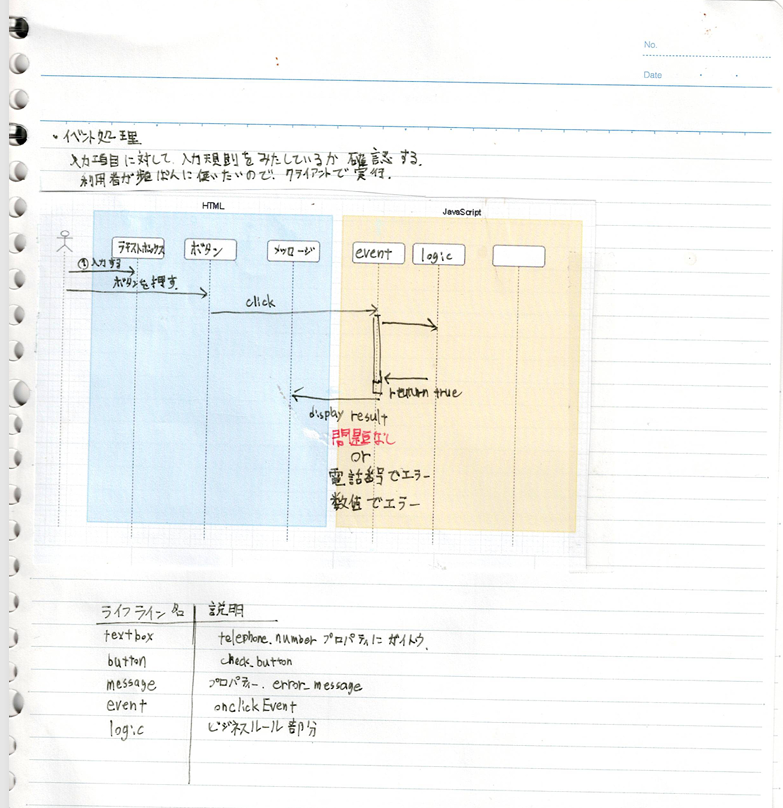 No.
Date
・イベント処理
入力項目に対して、入力規則をみたしているか 確認する.
利用者が頻ぱんに使いたいので、クライアントで実行.
HTML
JavaScript
テキストボックス
ボタン
メッセージ
event
logic
①入力する
ボタンを押す.
click
return true
display result
問題なし
or
電話番号でエラー
数値でエラー
ライフライン名 説明
textbox telephone.number プロパティに ガイトウ.
button check.button
message プロパティー. error_message
event onclickEvent
logic ビジネスルール部分